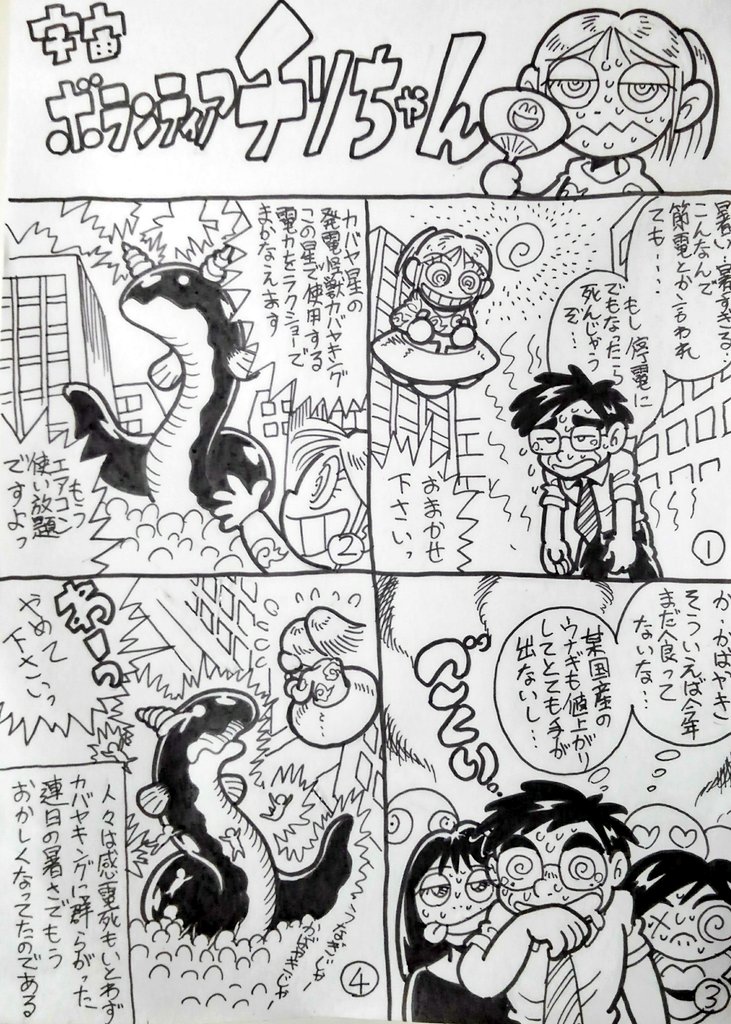 宇宙
ボランティアチリちゃん
暑い…暑すぎる…
こんなんで
節電とか言われ
ても……
もし停電に
でもなったら
死んじゃう
ぞ…
おまかせ
下さいっ
1
カバヤ星の
発電怪獣カバヤキング
この星で使用する
電力をラクショーで
まかなえます
もう
エアコン
使い放題
ですよっ
2
か・かばやき
そういえば今年
まだ食って
ないな…
某国産の
ウナギも値上がり
してとても手が
出ないし…
ごくい…
3
わーっ
やめて
下さいっ
うなぎじゃー
かばやきじゃー
人々は感電死もいとわず
カバヤキングに群らがった
連日の暑さでもう
おかしくなってたのである
4